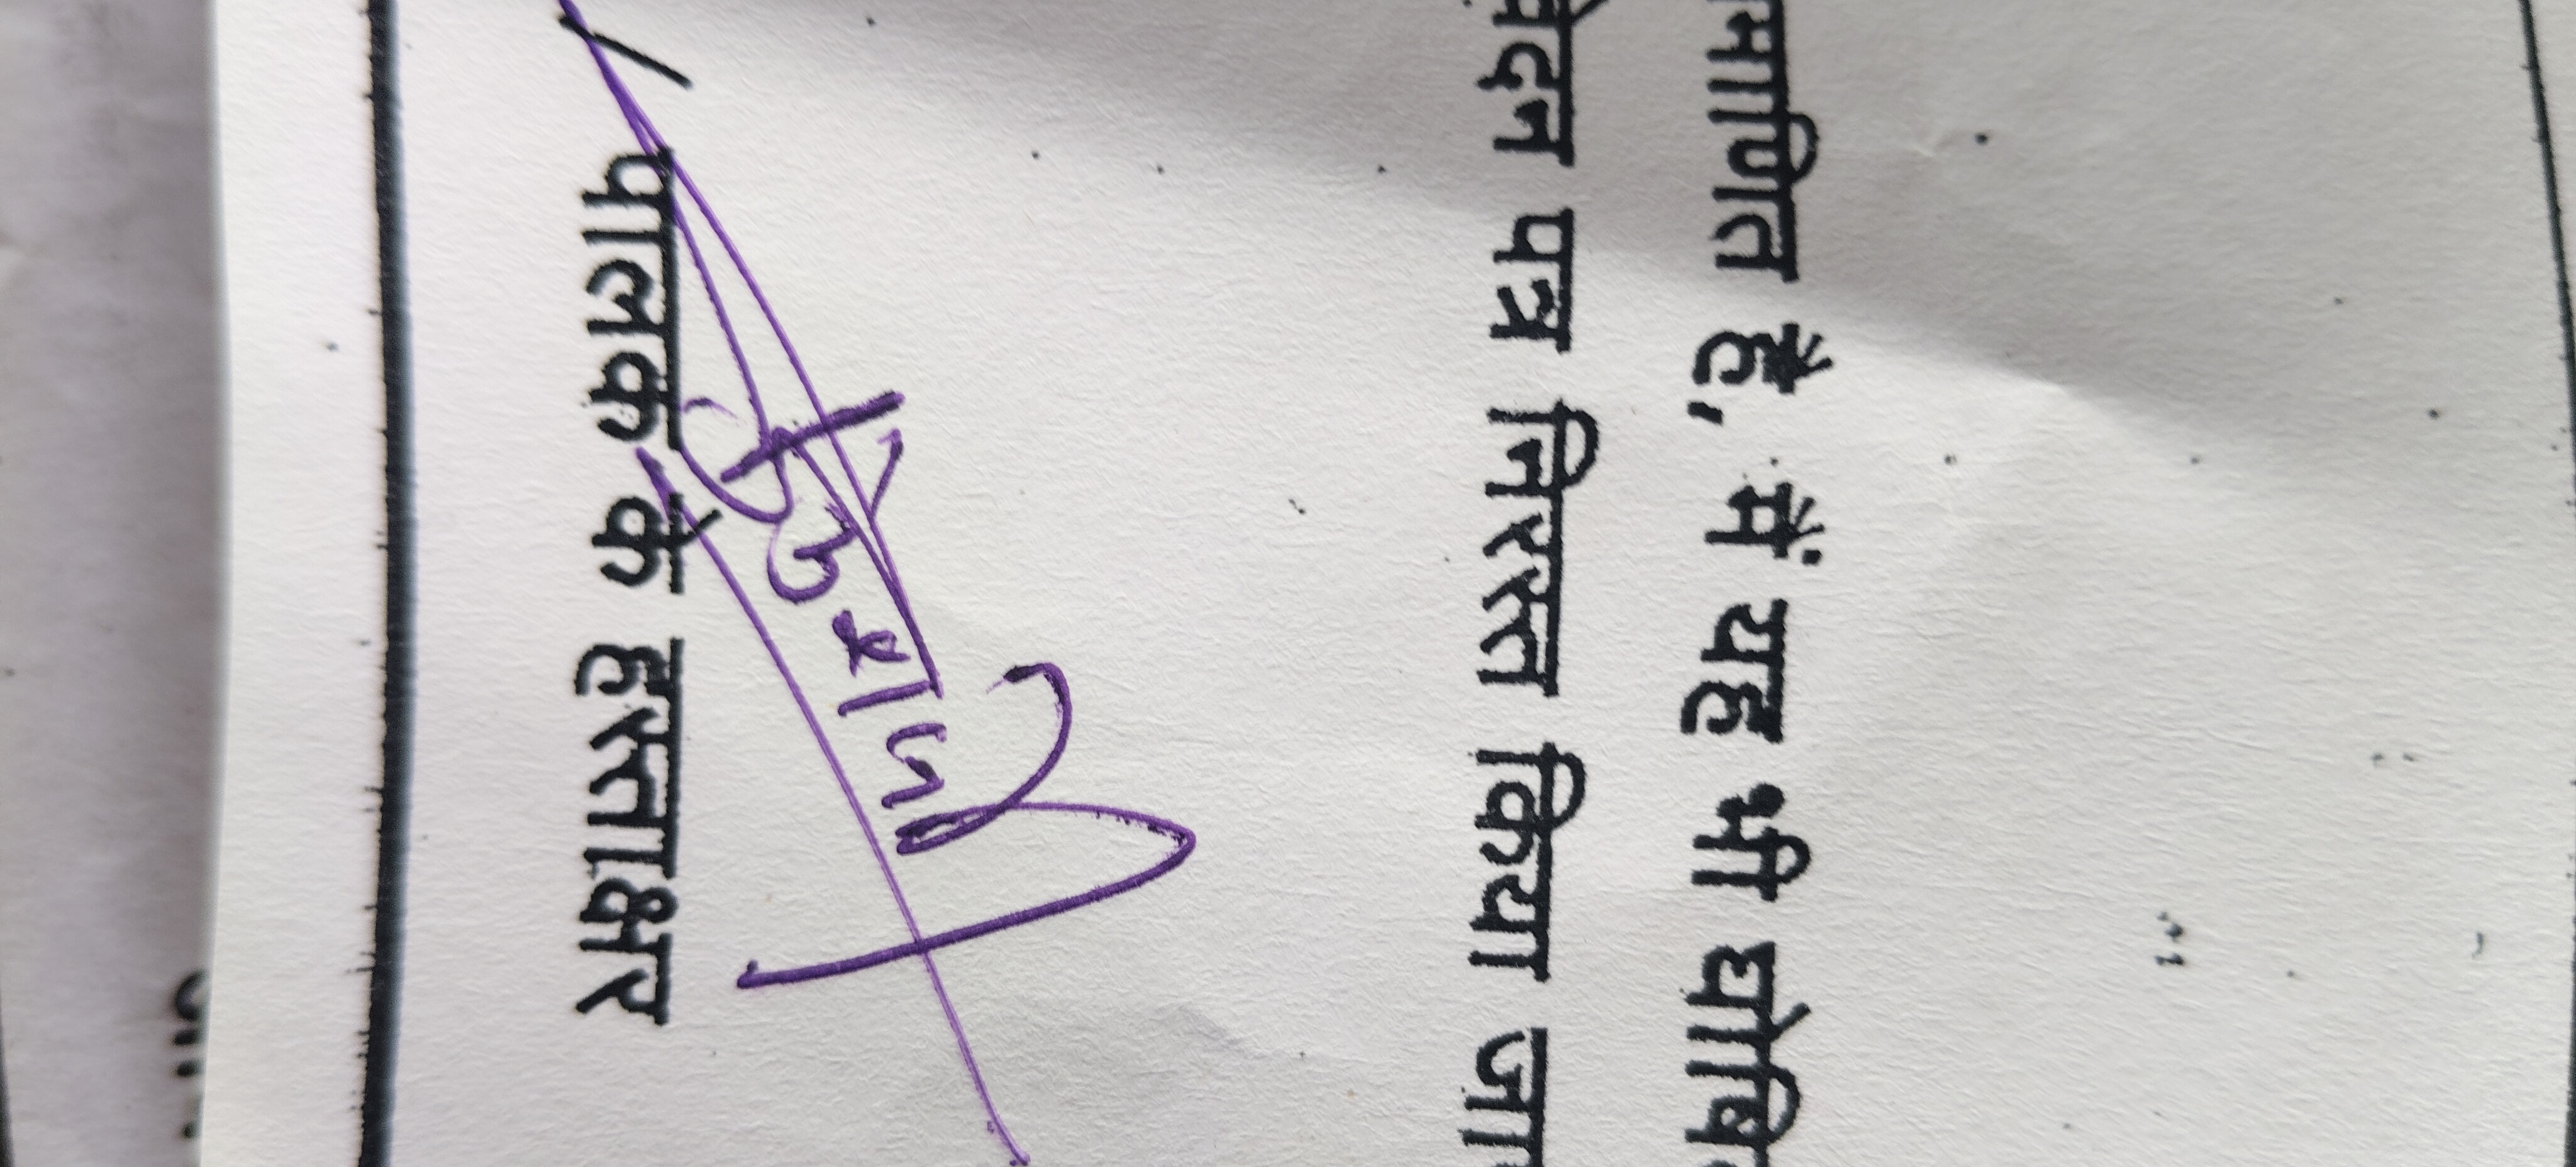 माणित है, मैं यह भी घोषि
वेदन पत्र निरस्त किया जा
/ पालक के हस्ताक्षर